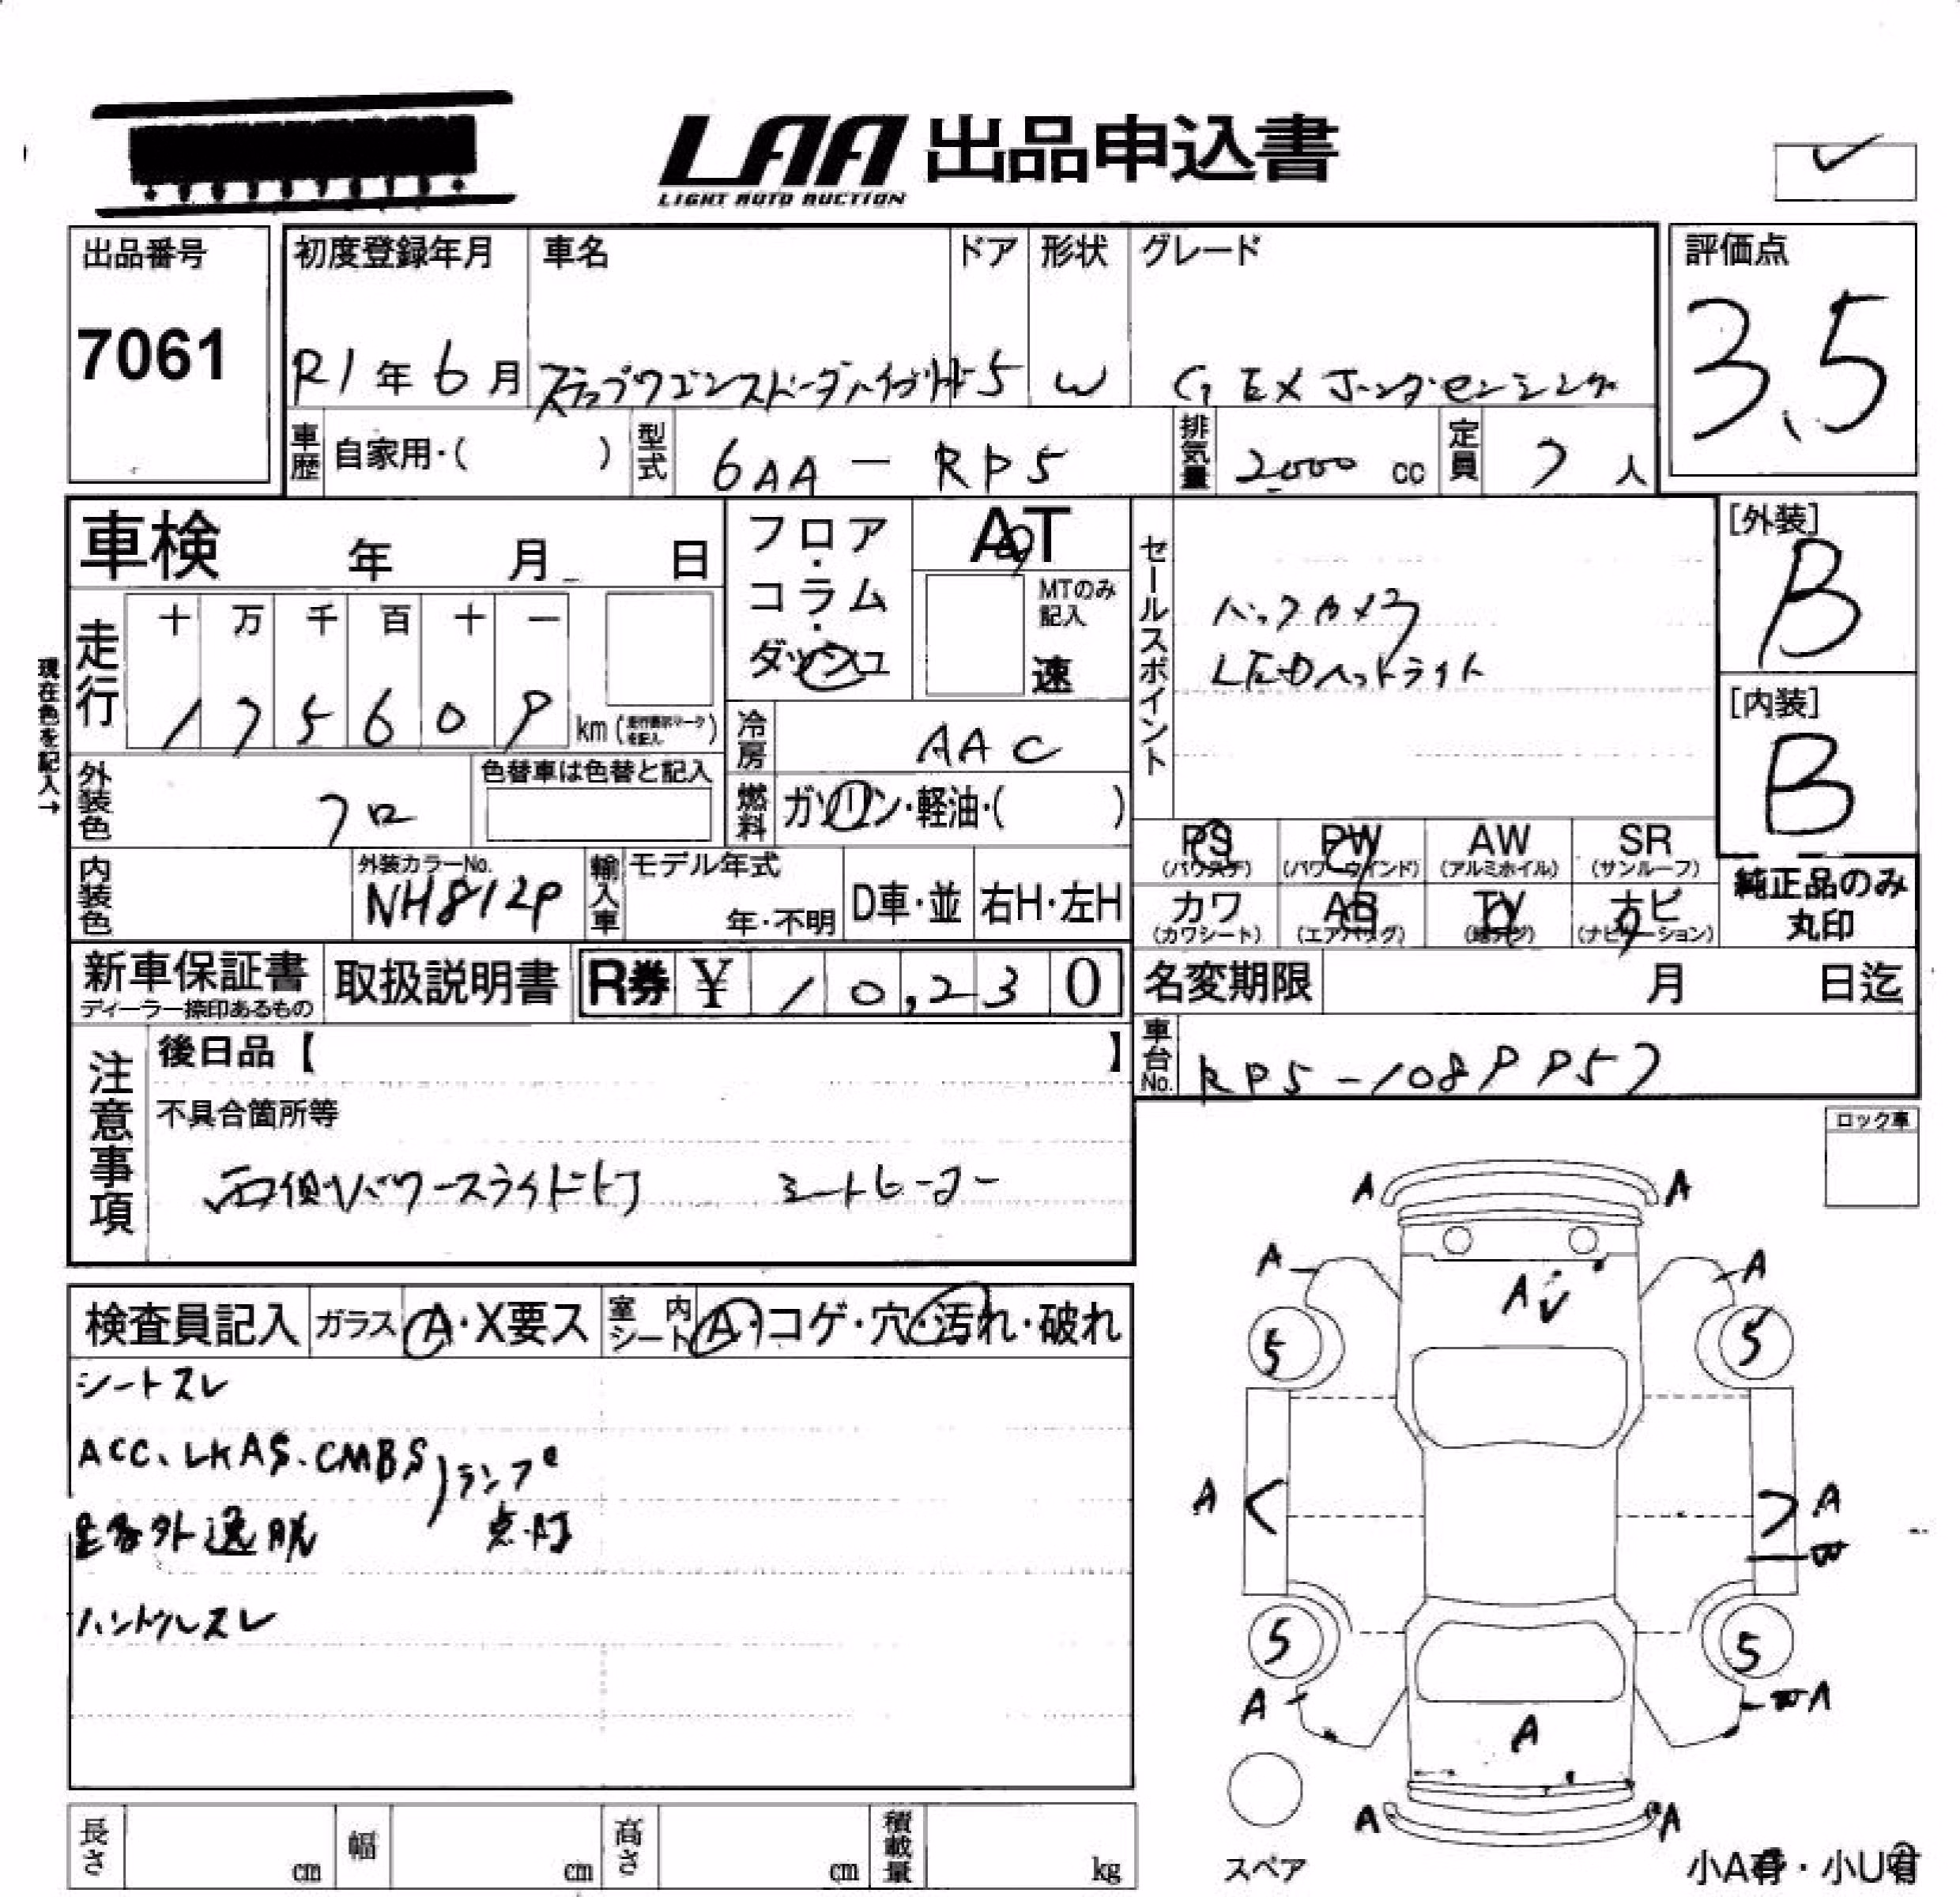 LAA 出品申込書
LIGHT AUTO AUCTION
出品番号
7061
初度登録年月
R1年6月
車名
ステップワゴンスパーダハイブリッド
ドア
5
形状
W
グレード
G EX ホンダセンシング
評価点
3.5
車歴 自家用・( )
型式 6AA-RP5
排気量 2000 cc
定員 7 人
車検 年 月 日
フロア・コラム・ダッシュ
AT
MTのみ記入
速
セールスポイント
バックカメラ
LEDヘッドライト
[外装]
B
[内装]
B
現在色を記入→
走行
十 万 千 百 十 一
1 7 5 6 0 9 km
冷房 AAC
外装色 クロ
色替車は色替と記入
燃料 ガソリン・軽油・( )
PS (パワステ)
PW (パワーウインド)
AW (アルミホイル)
SR (サンルーフ)
カワ (カワシート)
AB (エアバッグ)
TV (地デジ)
ナビ (ナビゲーション)
純正品のみ
丸印
内装色
外装カラーNo.
NH812P
輸入車
モデル年式
年・不明
D車・並
右H・左H
新車保証書
ディーラー捺印あるもの
取扱説明書
R券 ¥ 10,230
名変期限 月 日迄
車台No. RP5-1089957
注意事項
後日品【 】
不具合箇所等
両側パワースライドドア シートヒーター
ロック車
検査員記入
ガラス A・X要ス
室内シート A・コゲ・穴・汚れ・破れ
シートスレ
ACC、LKAS、CMBS
ランプ
点灯
路外逸脱
ハンドルスレ
A A
A A
A
5 5
A A
5 5
A A
A
A A
スペア
小A有・小U有
長さ cm
幅 cm
高さ cm
積載量 kg